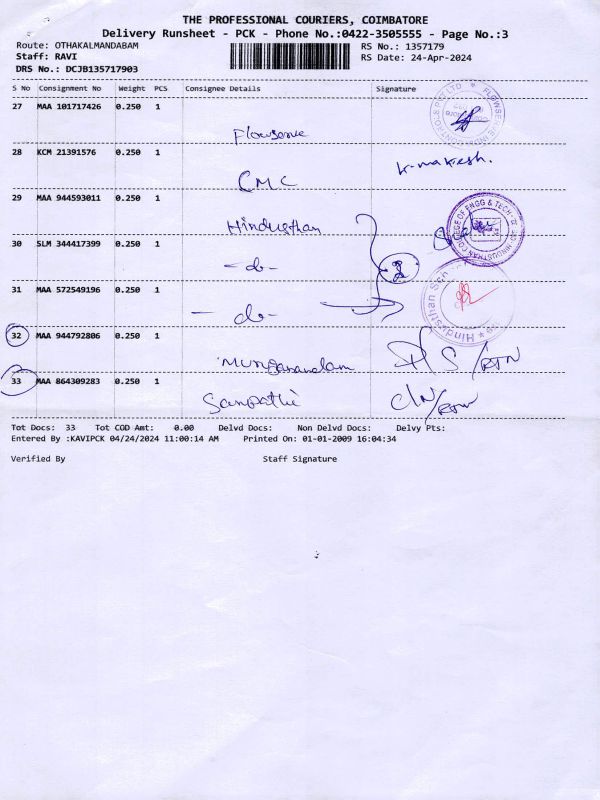 THE PROFESSIONAL COURIERS, COIMBATORE
Delivery Runsheet - PCK - Phone No.:0422-3505555 - Page No.:3
Route: OTHAKALMANDABAM RS No.: 1357179
Staff: RAVI RS Date: 24-Apr-2024
DRS No.: DCJB135717903
S No Consignment No Weight PCS Consignee Details Signature
27 MAA 101717426 0.250 1
Flowserve
28 KCM 21391576 0.250 1
CMC
29 MAA 944593011 0.250 1
Hindusthan
30 SLM 344417399 0.250 1
-do-
31 MAA 572549196 0.250 1
-do-
32 MAA 944792806 0.250 1
33 MAA 864309283 0.250 1
Sampathi
Tot Docs: 33 Tot COD Amt: 0.00 Delvd Docs: Non Delvd Docs: Delvy Pts:
Entered By :KAVIPCK 04/24/2024 11:00:14 AM Printed On: 01-01-2009 16:04:34
Verified By Staff Signature